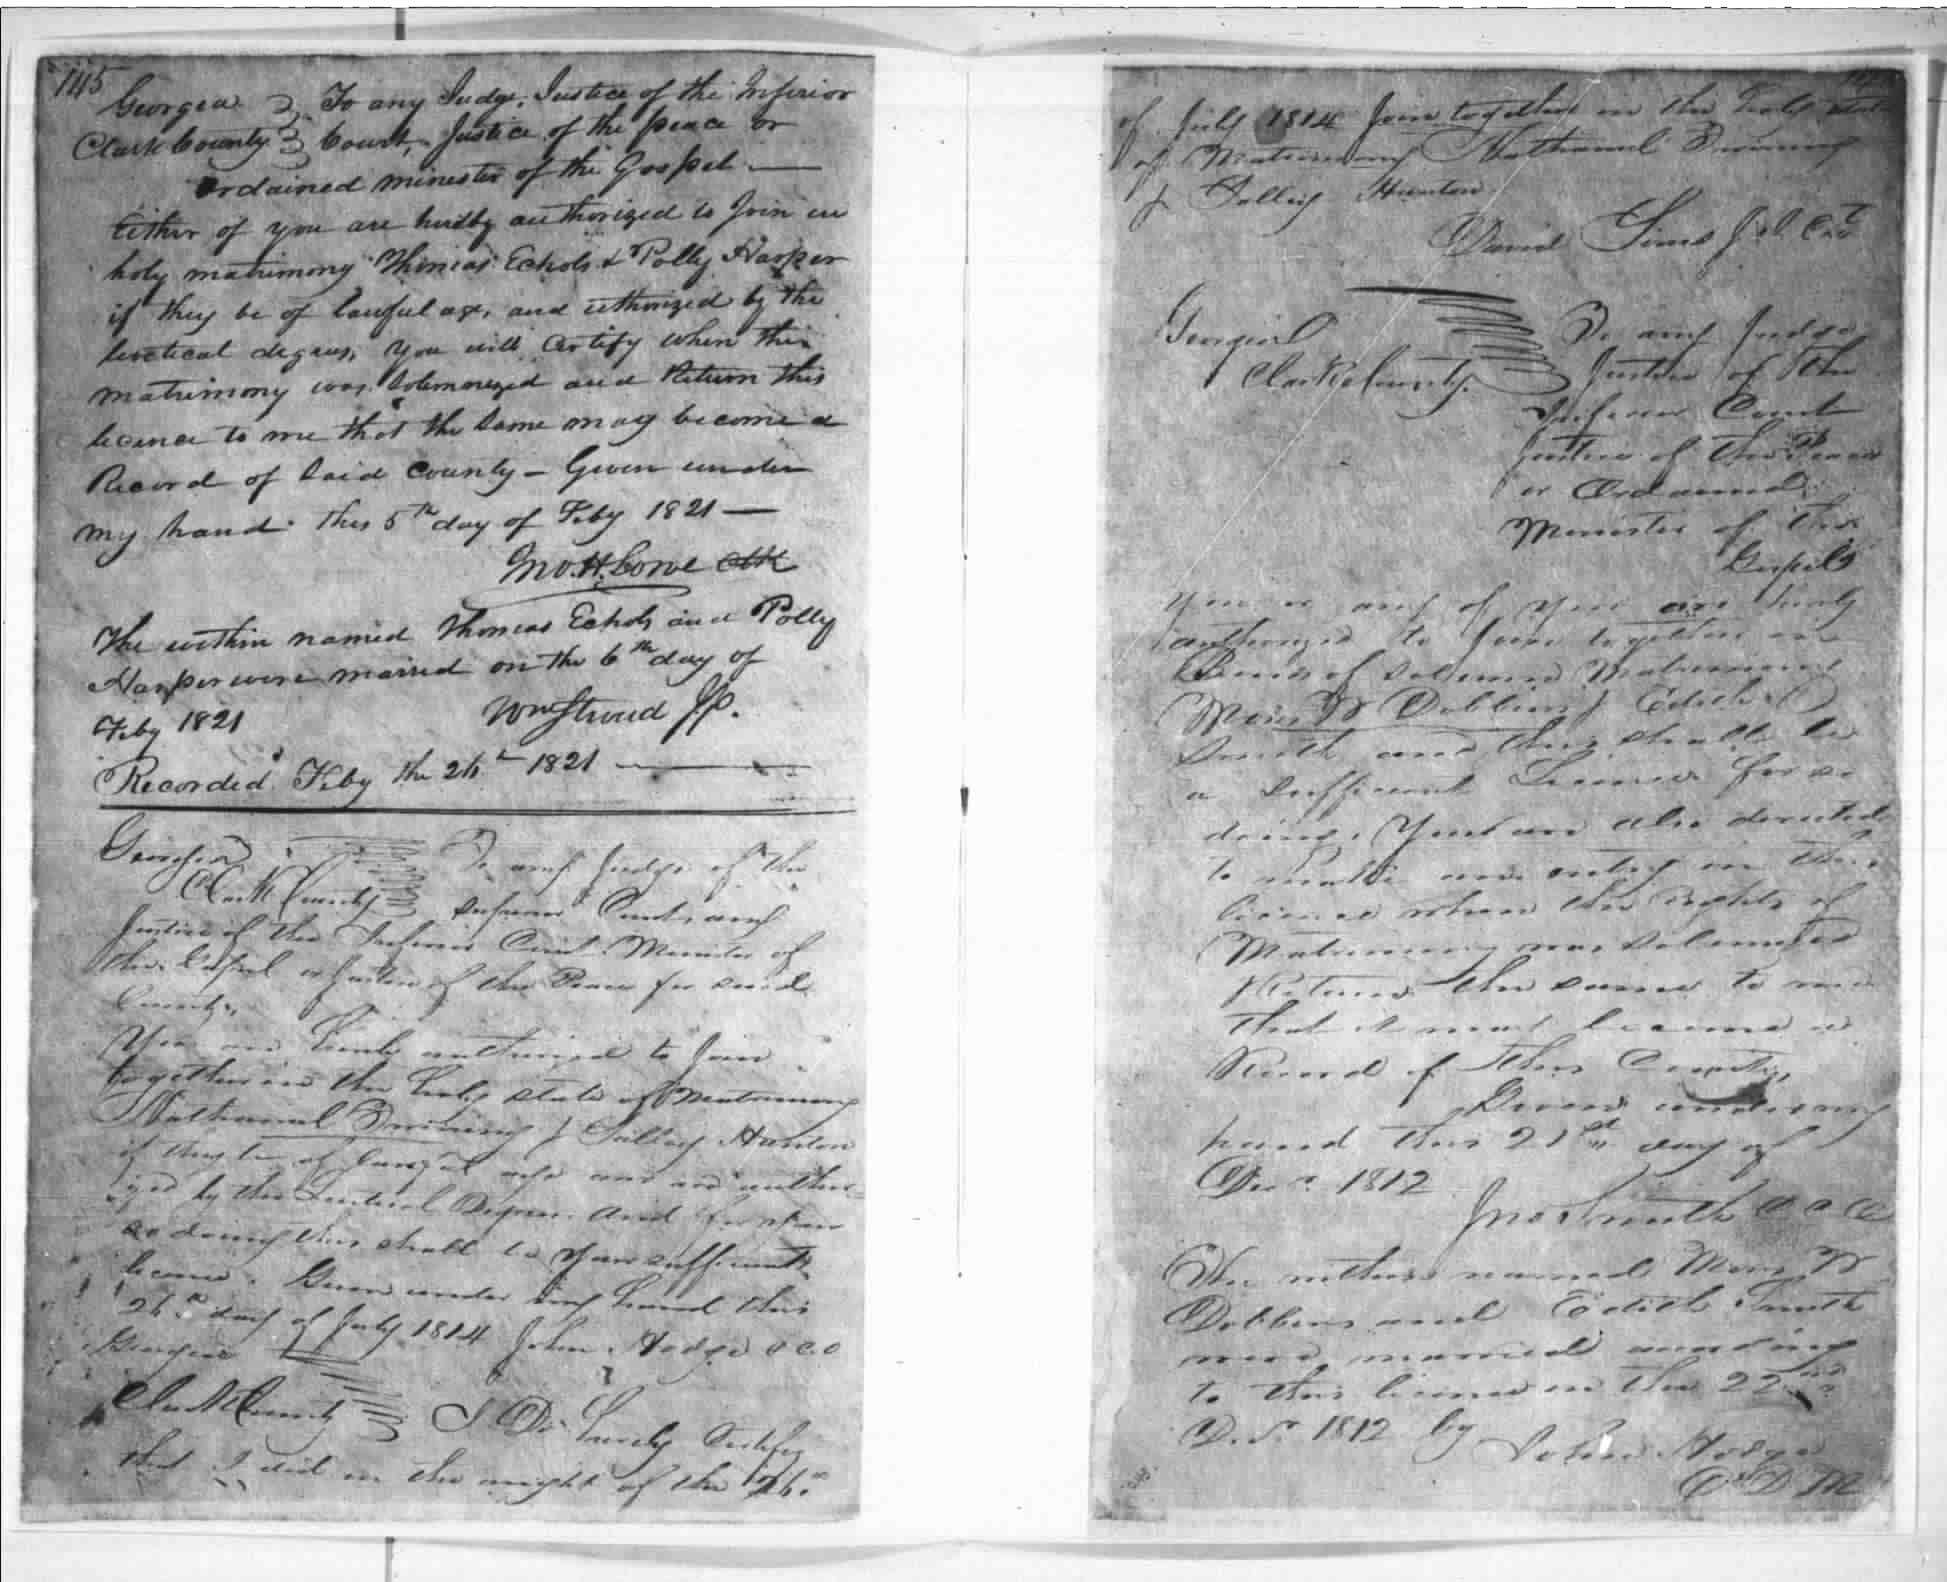 145
Georgea } To any Judge, Justice of the Inferior
Clark County } Court, Justice of the peace or
ordained minester of the Gospel —
Either of you are hereby authorized to Join in
holy matrimony Thomas Echols & Polly Harper
if they be of lawful age, and authorized by the
levetical degrees, you will Certify when this
matrimony was Solemnized and Return this
licence to me that the Same may become a
Record of Said County – Given under
my hand this 5th day of Feby 1821 —
Jno. H. Lowe Clk
The within named Thomas Echols and Polly
Harper were married on the 6th day of
Feby 1821 Wm Stroud J.P.
Recorded Feby the 26th 1821
Georgia } To any Judge of the
Clark County } Court, any
Justice of the Inferior Court Minister of
the Gospel or Justice of the Peace for said
County,
You are hereby authorized to Join
together in the holy state of Matrimony
Nathanael & Salley Hunton
if they be of Lawful age and are author
ized by the Levitical Degrees. And for your
so doing this shall be your sufficient
licence. Given under my hand this
26th day of July 1814 John Hodge C.C.O
Georgia
Clark County } I Do hereby Certify
that I did on the night of the 26th
of July 1814 Join together in the holy state
of Matrimony Nathanael
& Salley Hunton
David Sims J.I. Ct
Georgia } To any Judge
Clark County. } Justice of the
Inferior Court
Justice of the Peace
or Ordained
Minister of the
Gospel
You or any of you are hereby
authorized to Join together in
Bonds of solemn Matrimony
Moses W Dobbins & Edith
Smith and this shall be
a sufficient Licence for so
doing, You are also directed
to make an entry on this
licence when the rights of
Matrimony was solemnized
Return the same to me
that it may become a
Record of this County,
Given under my
hand this 21st day of
Decr. 1812
Jno Smith C C O
The within named Moses W
Dobbins and Edith Smith
were married according
to this licence on the 22nd
Decr 1812 by
John Hodge